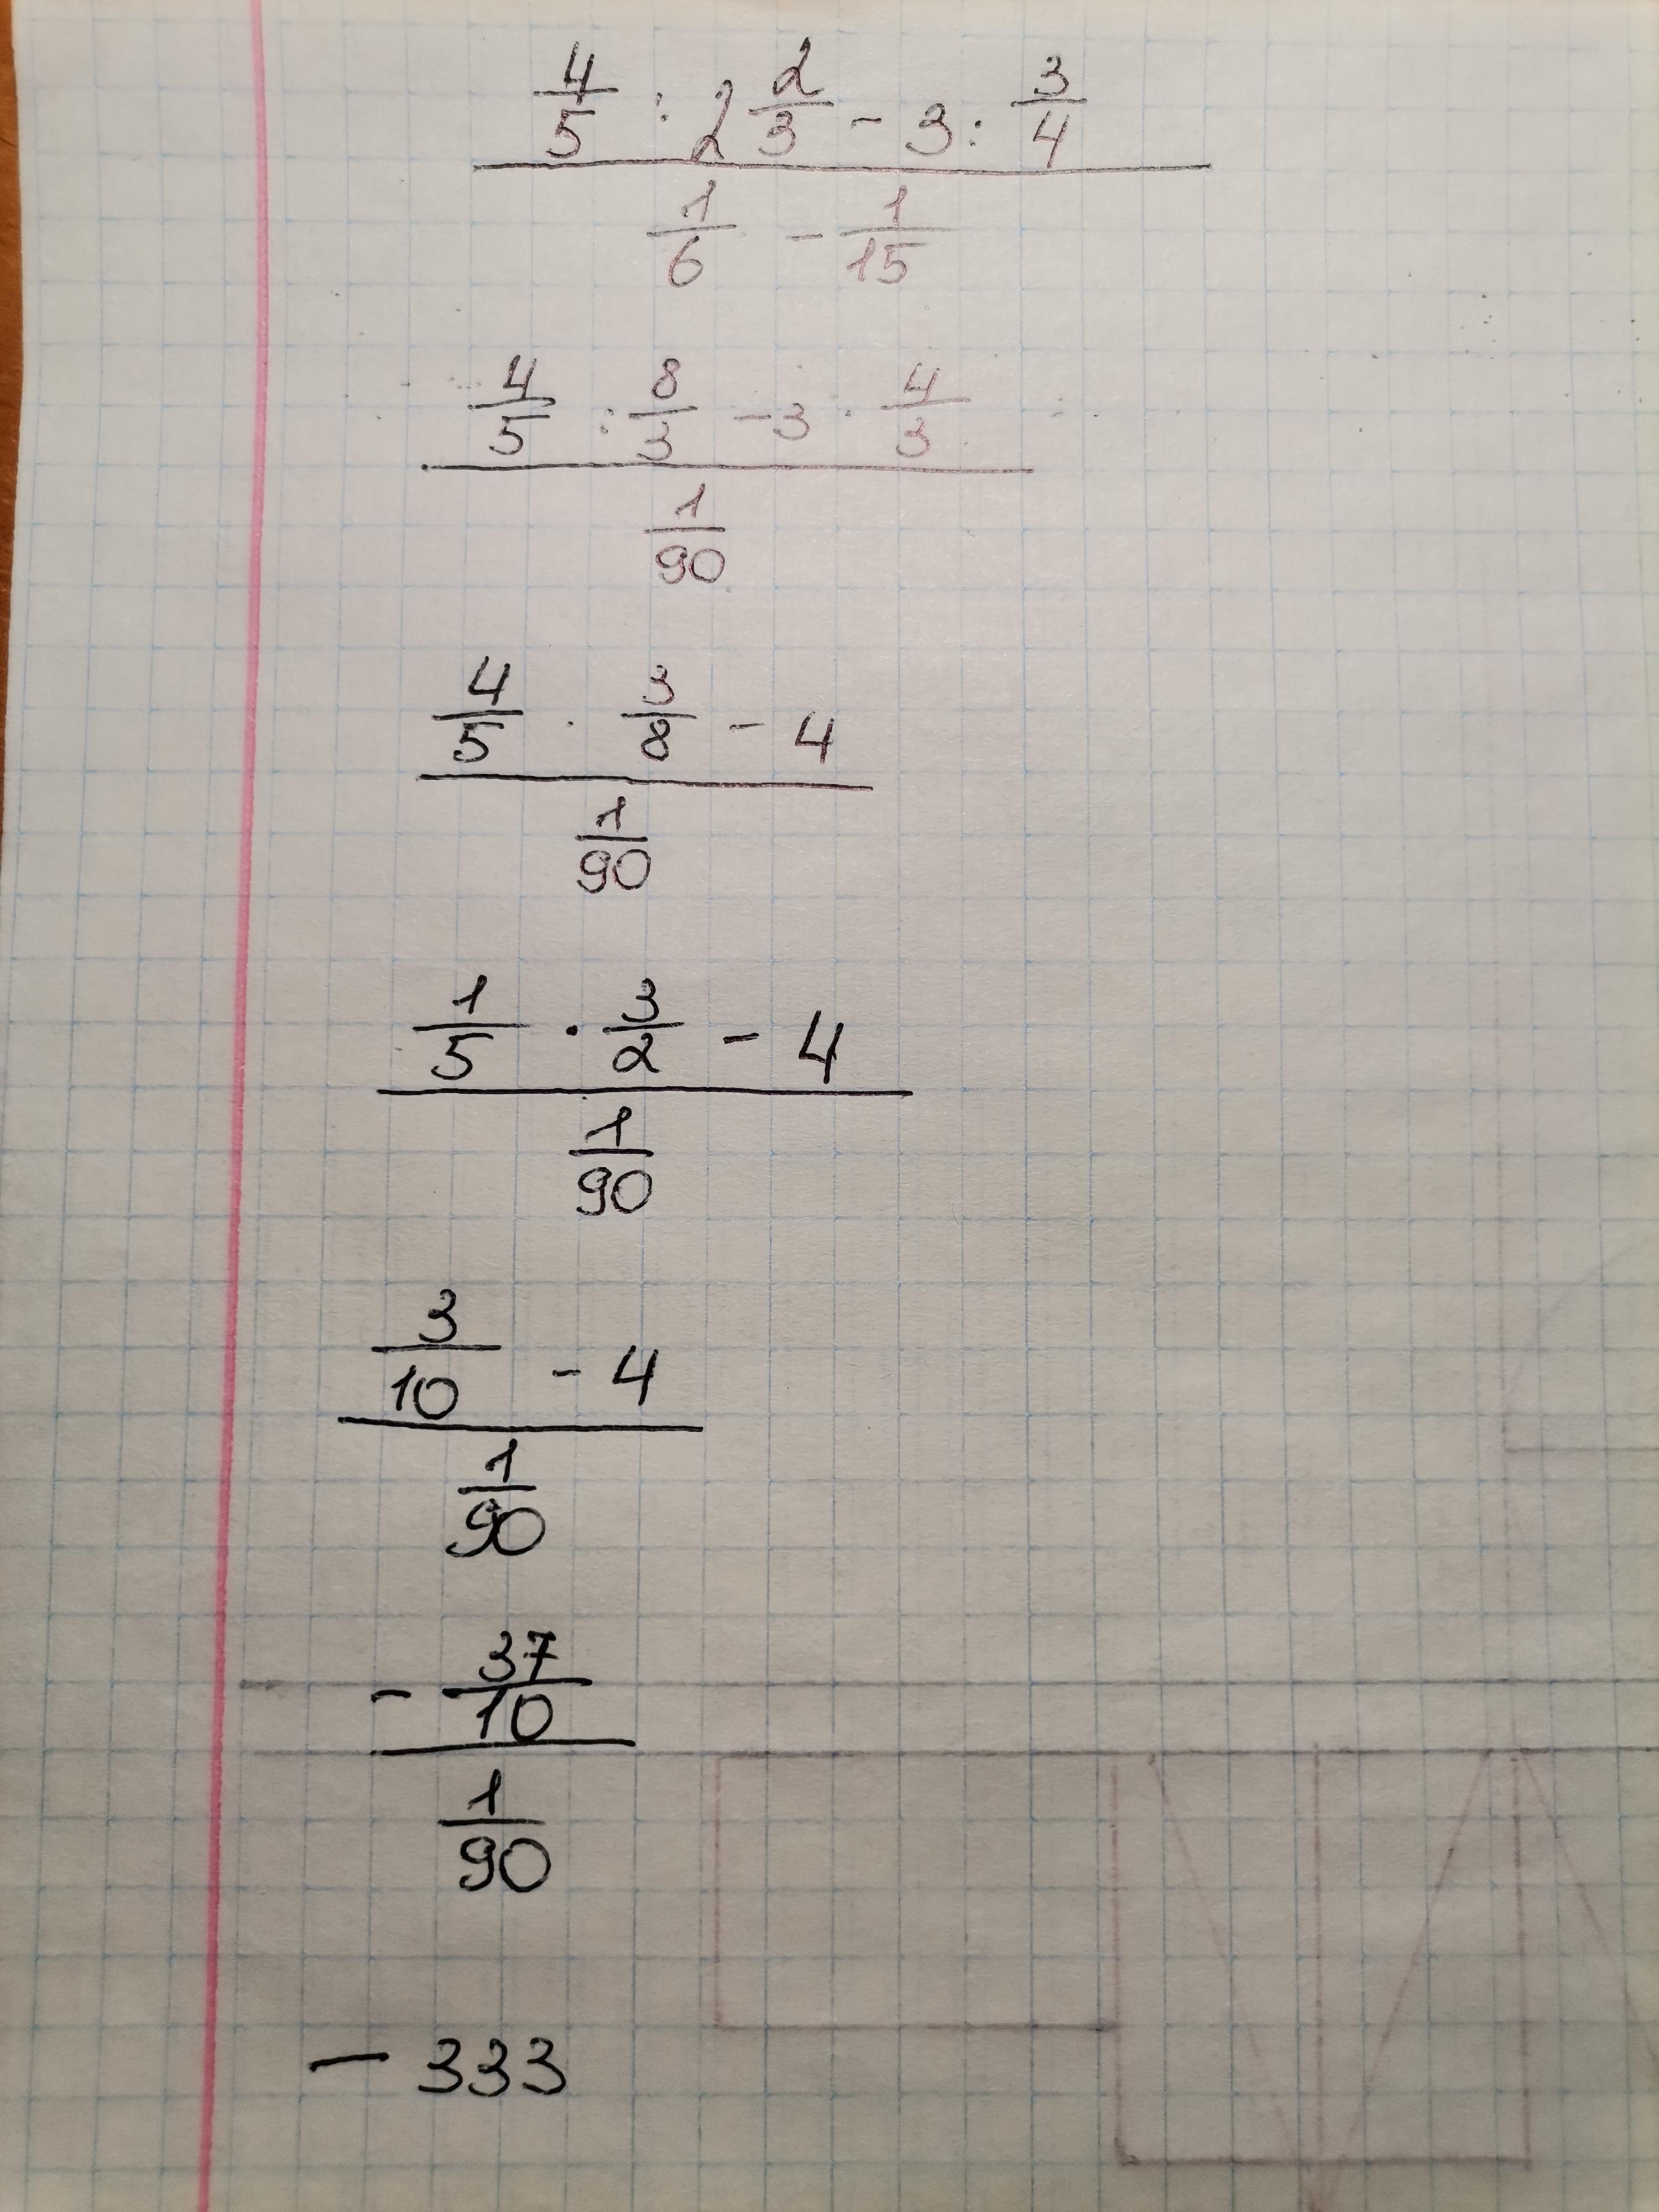 4/5 : 2 2/3 - 3 : 3/4
1/6 - 1/15
4/5 : 8/3 - 3 · 4/3
1/90
4/5 · 3/8 - 4
1/90
1/5 · 3/2 - 4
1/90
3/10 - 4
1/90
- 37/10
1/90
- 333